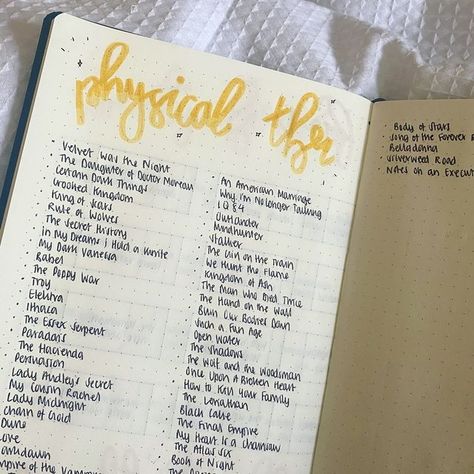 physical tbr
Velvet Was the Night
The Daughter of Doctor Moreau
Certain Dark Things
Crooked Kingdom
King of Scars
Rule of Wolves
The Secret History
In My Dreams I Hold a Knife
My Dark Vanessa
Babel
The Poppy War
Troy
Elektra
Ithaca
The Essex Serpent
Paradais
The Hacienda
Persuasion
Lady Audley's Secret
My Cousin Rachel
Lady Midnight
Chain of Gold
Dune
Love
mpire of the Vampire
An American Marriage
Why I'm No Longer Talking
1Q84
Outlander
Mindhunter
Stalker
The Girl on the Train
We Hunt the Flame
Kingdom of Ash
The Man who Died Twice
The Hand on the Wall
Burn Our Bodies Down
Such a Fun Age
Open Water
The Shadows
The Wolf and the Woodsman
Once Upon A Broken Heart
How to Kill Your Family
The Leviathan
Black Cake
The Final Empire
My Heart is a Chainsaw
The Atlas Six
Book of Night
Body of Stars
Song of the Forever R
Belladonna
Silverweed Road
Notes on an Execut